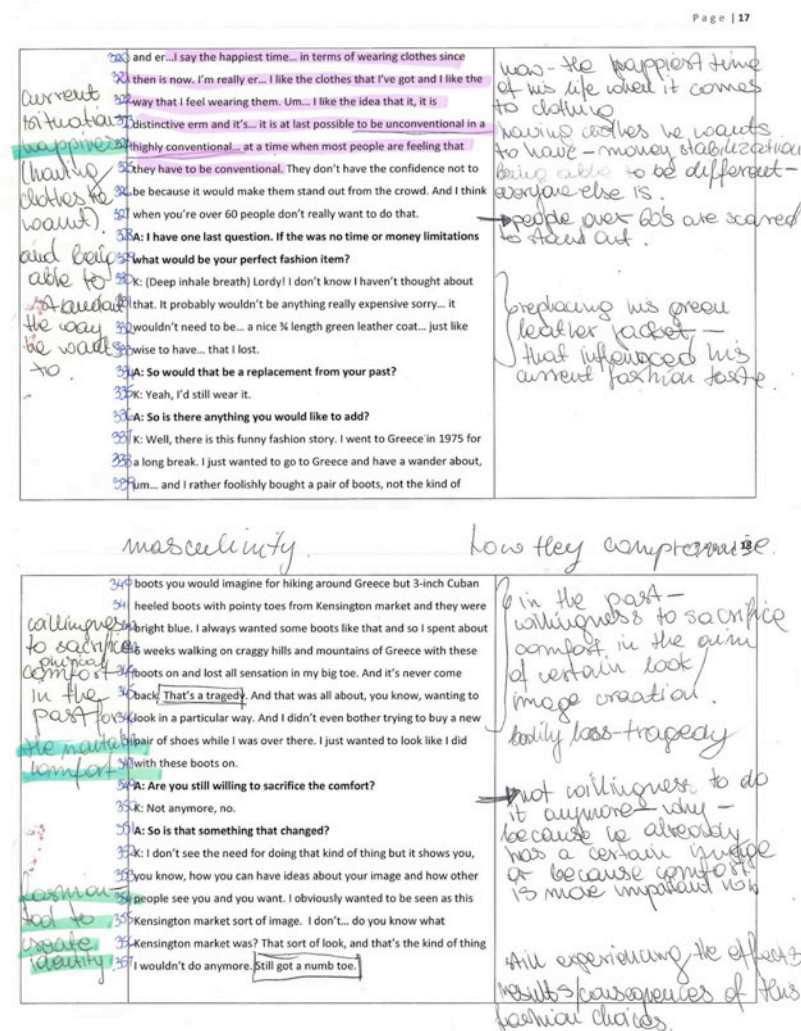 Page | 17
320 and er...I say the happiest time... in terms of wearing clothes since
321 then is now. I'm really er... I like the clothes that I've got and I like the
322 way that I feel wearing them. Um... I like the idea that it, it is
323 distinctive erm and it's... it is at last possible to be unconventional in a
324 highly conventional... at a time when most people are feeling that
325 they have to be conventional. They don't have the confidence not to
326 be because it would make them stand out from the crowd. And I think
327 when you're over 60 people don't really want to do that.
328 A: I have one last question. If the was no time or money limitations
329 what would be your perfect fashion item?
330 K: (Deep inhale breath) Lordy! I don't know I haven't thought about
331 that. It probably wouldn't be anything really expensive sorry... it
332 wouldn't need to be... a nice ¾ length green leather coat... just like
333 wise to have... that I lost.
334 A: So would that be a replacement from your past?
335 K: Yeah, I'd still wear it.
336 A: So is there anything you would like to add?
337 K: Well, there is this funny fashion story. I went to Greece in 1975 for
338 a long break. I just wanted to go to Greece and have a wander about,
339 um... and I rather foolishly bought a pair of boots, not the kind of
current
situation
happiness
(having
clothes he
want).
and being
able to
standout
the way
he wants
to.
now - the happiest time
of his life when it comes
to clothing
having clothes he wants
to have - money stabilization
being able to be different -
everyone else is.
people over 60's are scared
to stand out.
replacing his green
leather jacket -
that influenced his
current fashion taste
masculinity.
how they compromise.
18
340 boots you would imagine for hiking around Greece but 3-inch Cuban
341 heeled boots with pointy toes from Kensington market and they were
342 bright blue. I always wanted some boots like that and so I spent about
343 6 weeks walking on craggy hills and mountains of Greece with these
344 boots on and lost all sensation in my big toe. And it's never come
345 back. That's a tragedy. And that was all about, you know, wanting to
346 look in a particular way. And I didn't even bother trying to buy a new
347 pair of shoes while I was over there. I just wanted to look like I did
348 with these boots on.
349 A: Are you still willing to sacrifice the comfort?
350 K: Not anymore, no.
351 A: So is that something that changed?
352 K: I don't see the need for doing that kind of thing but it shows you,
353 you know, how you can have ideas about your image and how other
354 people see you and you want. I obviously wanted to be seen as this
355 Kensington market sort of image. I don't... do you know what
356 Kensington market was? That sort of look, and that's the kind of thing
357 I wouldn't do anymore. Still got a numb toe.
willingness
to sacrifice
phisical
comfort
in the
past for
the mental
comfort
fashion -
tool to
create
identity
in the past -
willingness to sacrifice
comfort in the aim
of certain look/
image creation.
bodily loss - tragedy
not willingness to do
it anymore - why -
because he already
has a certain image
or because comfort
is more important now
still experiencing the effects
results/consequences of this
fashion choices.